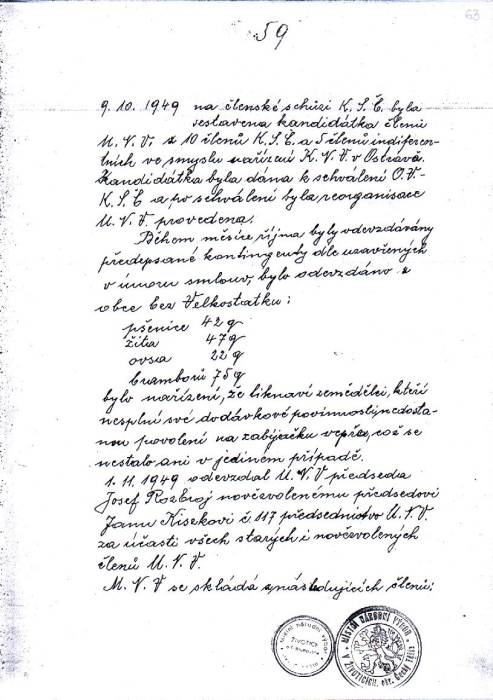 63
59
9.10.1949 na členské schůzi K.S.Č. byla
sestavena kandidátka členů
M.N.V. z 10 členů K.S.Č. a 5 členů indiferen-
tních ve smyslu nařízení K.N.V. v Ostravě.
Kandidátka byla dána k schválení O.V-
K.S.Č a po schválení byla reorganisace
M.N.V. provedena.
Během měsíce října byly odevzdávány
předepsané kontingenty dle uzavřených
v únoru smluv, bylo odevzdáno z
obce bez Velkostatku:
pšenice 42 q
žita 47 q
ovsa 22 q
bramborů 75 q
bylo nařízení, že liknaví zemědělci, kteří
nesplní své dodávkové povinnosti, nedosta-
nou povolení na zabijačku vepře, což se
nestalo ani v jediném případě.
1.11.1949 odevzdal M.N.V předseda
Josef Rozbroj novězvolenému předsedovi
Janu Kiszkovi č 117 předsednictvo M.N.V.
za účasti všech starých i novězvolených
členů M.N.V.
M.N.V se skládá z následujících členů:
MÍSTNÍ NÁRODNÍ VÝBOR
ŽIVOTICE
MÍSTNÍ NÁRODNÍ VÝBOR
V ŽIVOTICÍCH, okr. Český Těšín